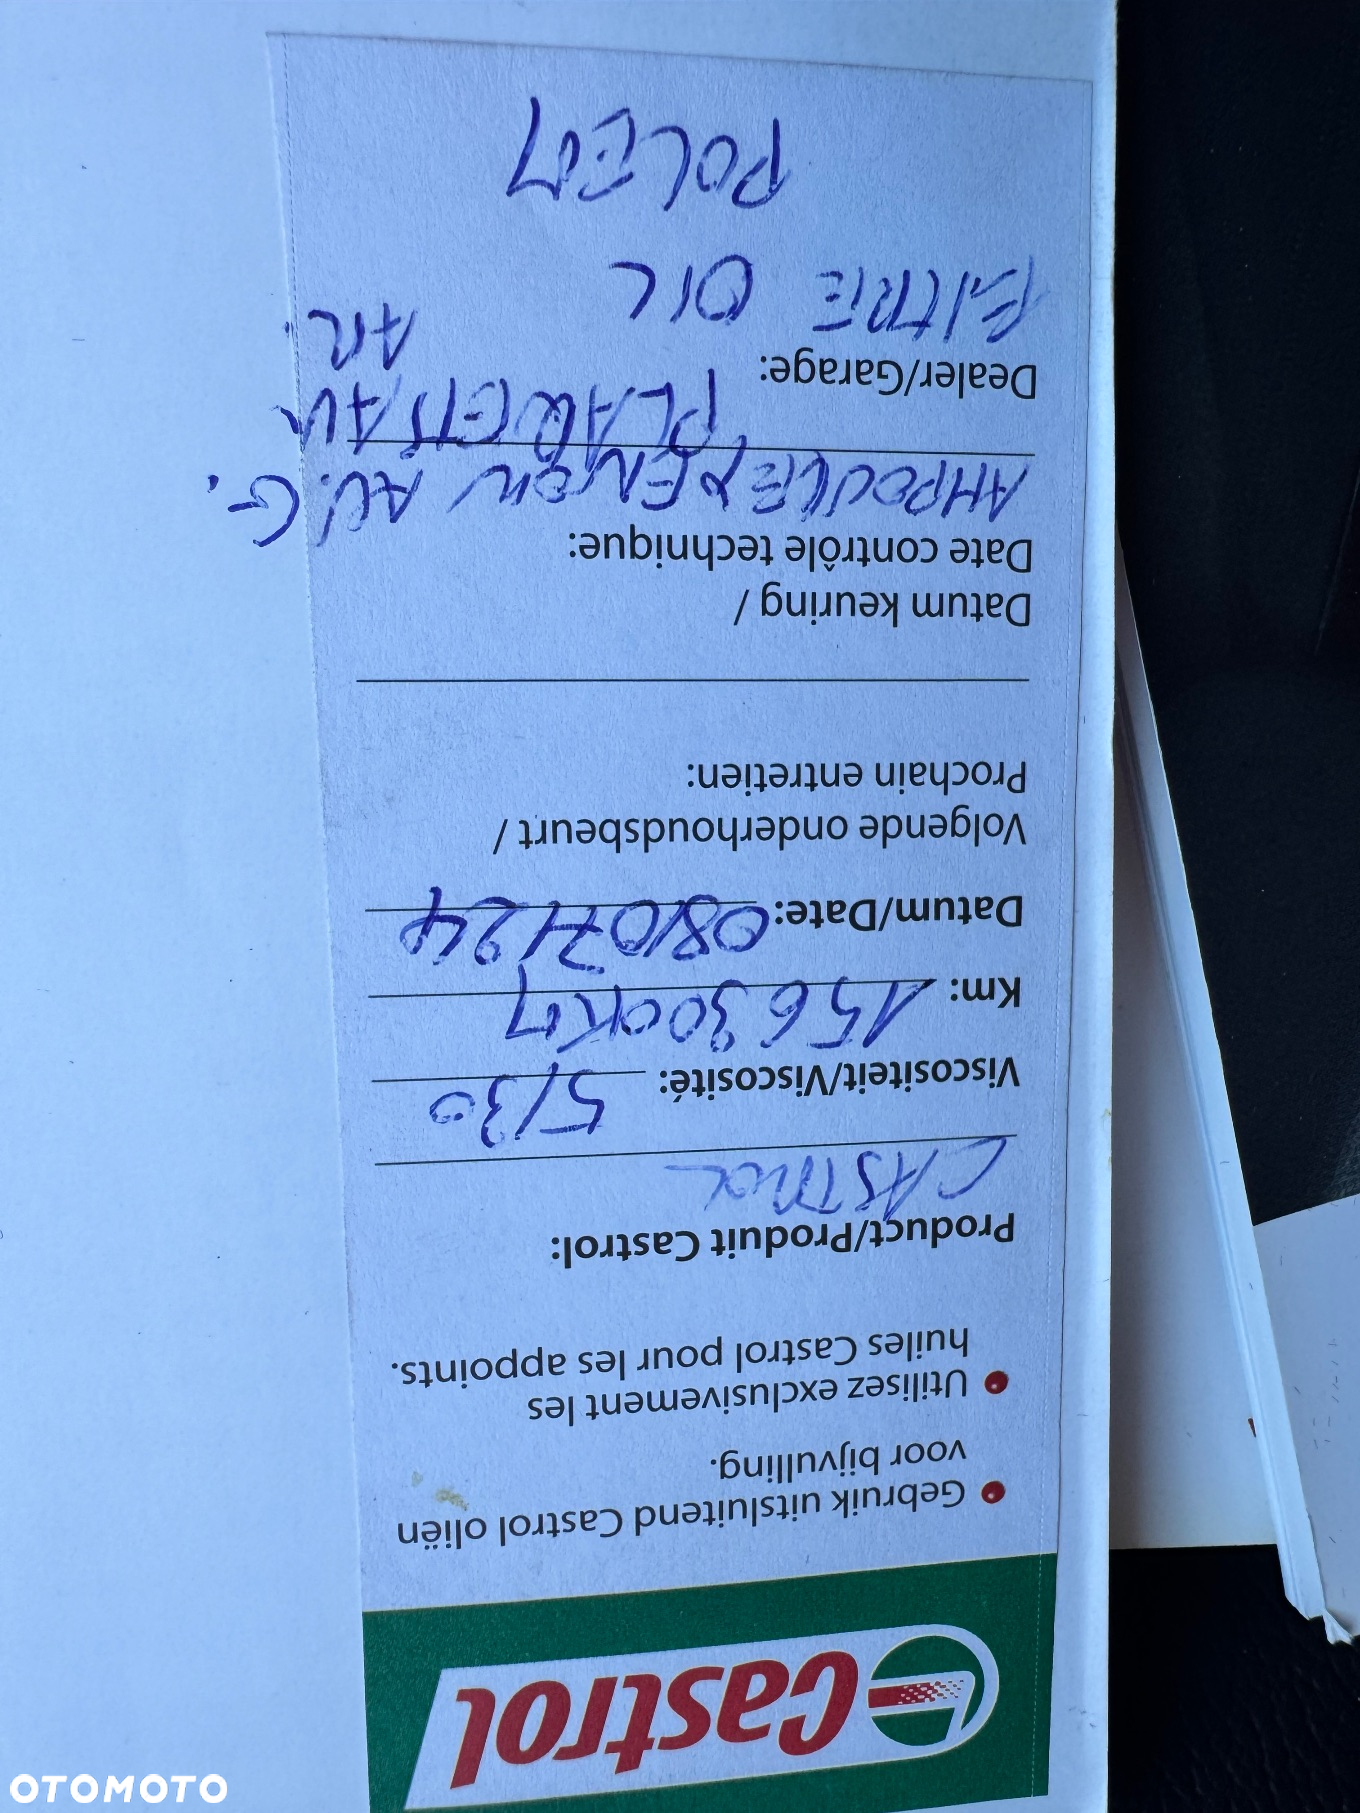 Castrol
• Gebruik uitsluitend Castrol oliën
voor bijvulling.
• Utilisez exclusivement les
huiles Castrol pour les appoints.
Product/Produit Castrol:
CASTROL
Viscositeit/Viscosité: 5/30
Km: 156300KM
Datum/Date: 08/07/24
Volgende onderhoudsbeurt /
Prochain entretien:
Datum keuring /
Date contrôle technique:
AMPOULE XENON AV. G.
PLAQUETS AV
Dealer/Garage:
AR.
FILTRE OIL
POLEM
OTOMOTO